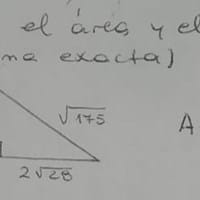 el área y el
ma exacta)
√175
A
2√28